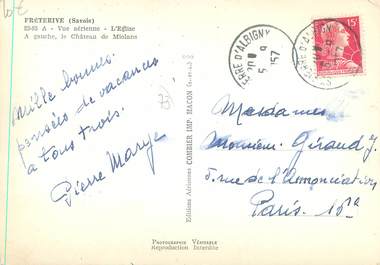 FRÉTERIVE (Savoie)
23-93 A - Vue aérienne - L'Eglise
A gauche, le Château de Miolans
Mille bonnes
pensées de vacances
à tous trois.
Pierre Marye
Editions Aériennes COMBIER IMP. MACON
RRE D'ALBIGNY
20 9
5 157
15F
Mesdames
Monsieur Giraud
5 rue de l'Annonciation
Paris 16e
PHOTOGRAPHIE VÉRITABLE
Reproduction Interdite